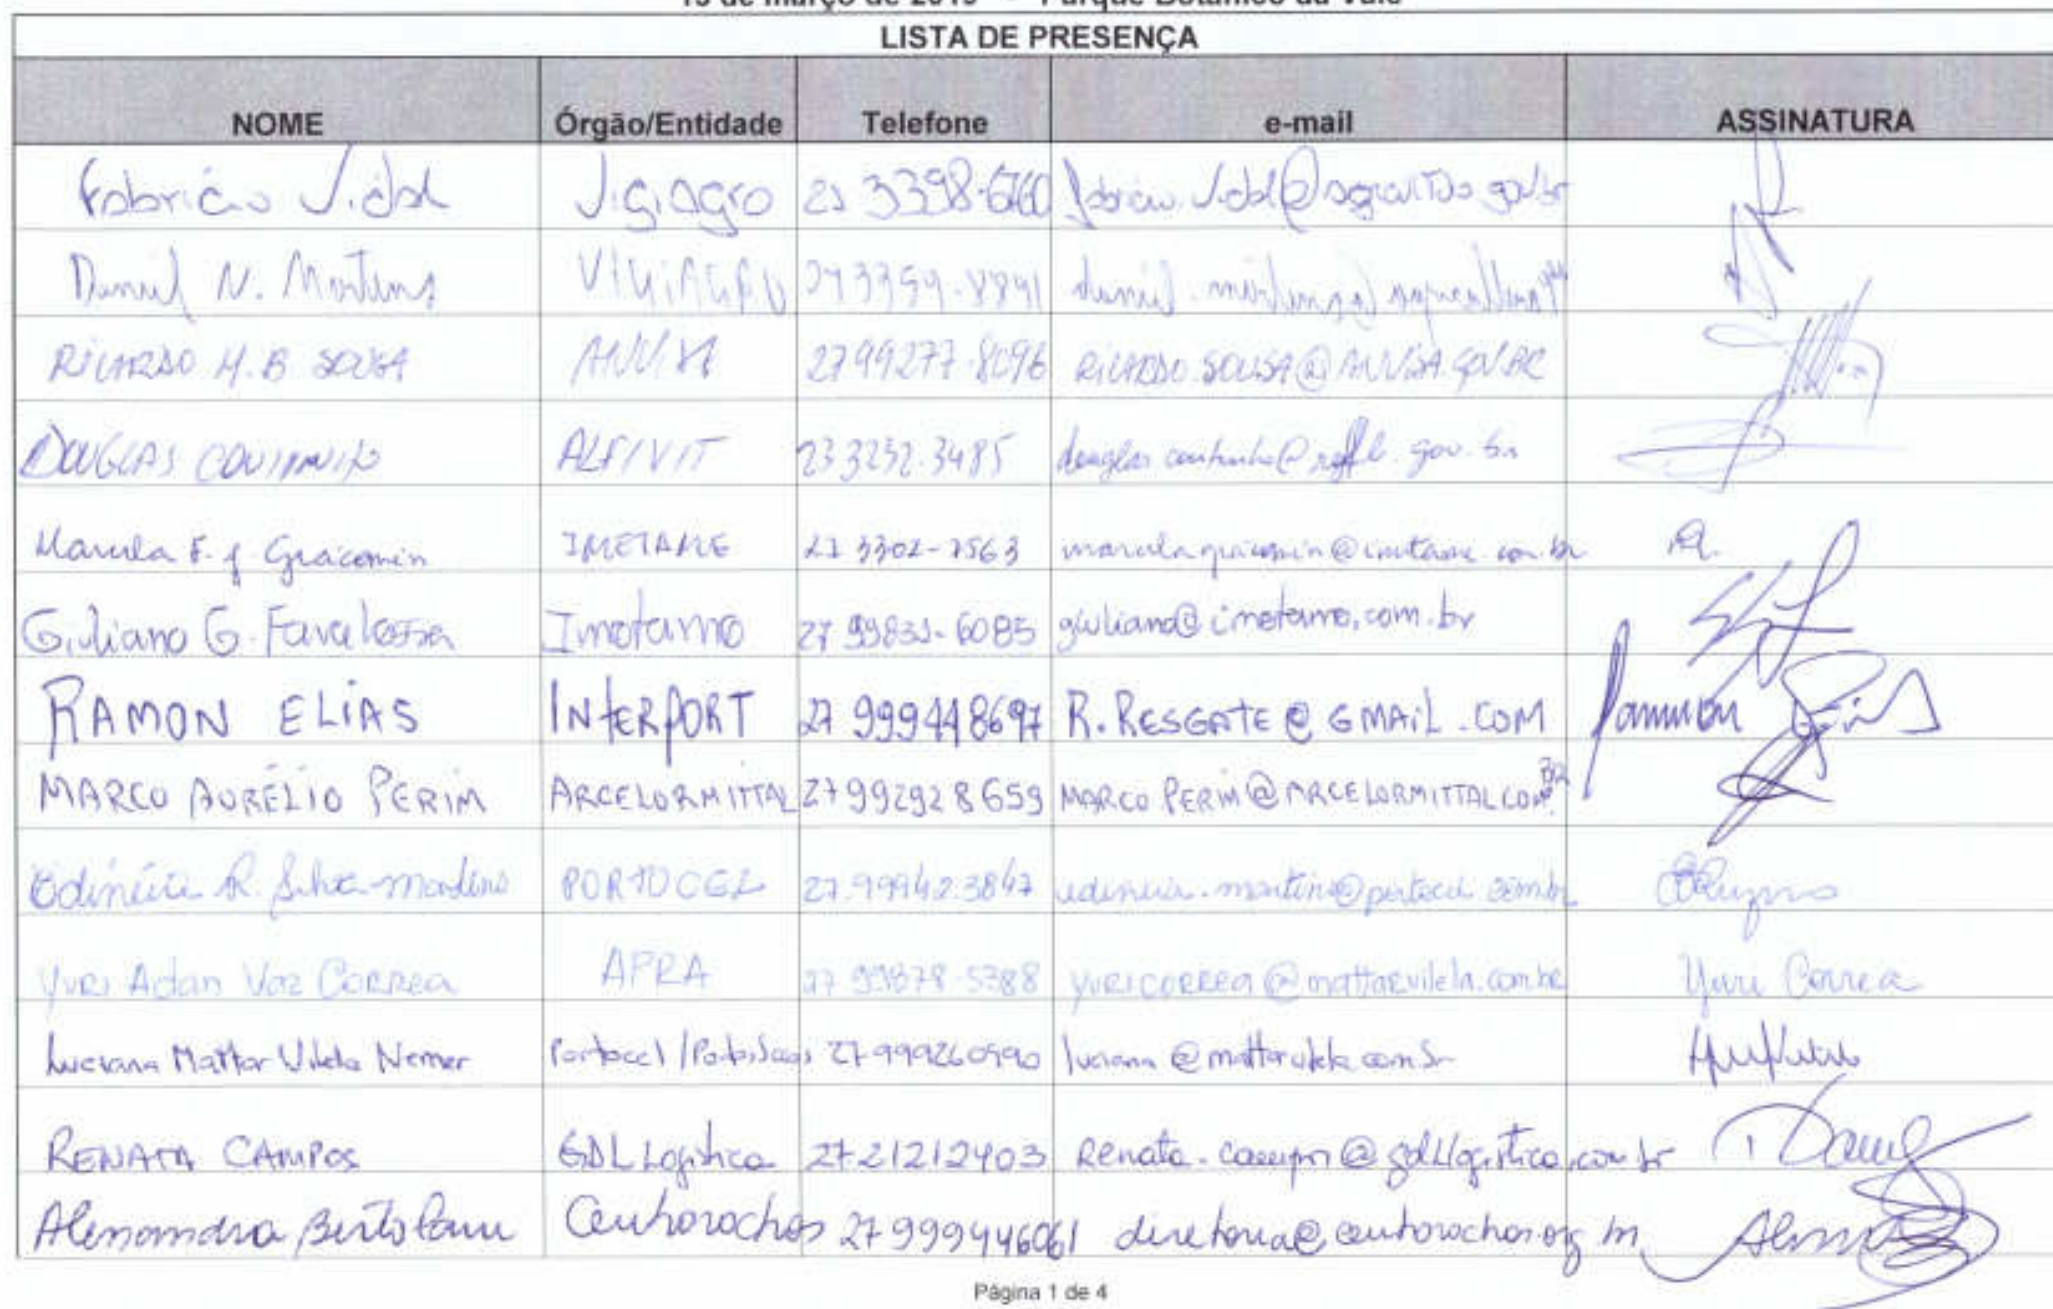 LISTA DE PRESENÇA
NOME Órgão/Entidade Telefone e-mail ASSINATURA
Fabricio Vidal Vigiagro 27 3398-6760
Daniel N. Martins VIGIAGRO
RICARDO H.B SOUSA ANVISA 27 99277-8096 RICARDO.SOUSA@ANVISA.GOV.BR
DOUGLAS COUTINHO ALF/VIT 27 3232.3485
Marcela F. f Giacomin IMETAME 27 3302-7563
Giuliano G. Favalessa Imetame 27 99831-6085 giuliano@imetame.com.br
RAMON ELIAS INTERPORT 27 999448697 R.RESGATE@GMAIL.COM Rammon
MARCO AURÉLIO PERIM ARCELORMITTAL 27 992928659 MARCO PERIM@ARCELORMITTAL.COM.BR
Edinéia R. Silva Martins PORTOCEL 27.99942.3847
Yuri Adan Vaz Correa APRA 27 99878-5388 yuricorrea@mattarvilela.com.br Yuri Correa
Luciana Mattar Vilela Nemer Portocel 27 999260590 luciana@mattarvilela.com.br
RENATA CAMPOS GDL Logística 27 21212403 renata.campos@gdllogistica.com.br
Alessandra Centrorochas 27 999446061 diretoria@centrorochas.org.br
Página 1 de 4